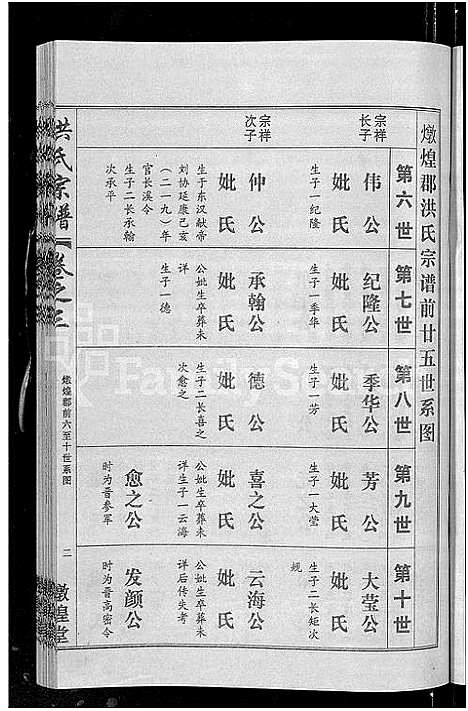 燉煌郡洪氏宗谱前廿五世系图
第六世
宗祥长子
伟公
妣氏
生子一纪隆
宗祥次子
仲公
妣氏
生于东汉献帝
刘协延康己亥
(二一九)年
官长溪令
生子二长承翰
次承平
第七世
纪隆公
妣氏
生子一季华
承翰公
妣氏
公妣生卒葬未
详
生子一德
第八世
季华公
妣氏
生子一芳
德公
妣氏
生子二长喜之
次愈之
第九世
芳公
妣氏
生子一大莹
喜之公
妣氏
公妣生卒葬未
详生子一云海
愈之公
时为晋参军
第十世
大莹公
妣氏
生子二长矩次
规
云海公
妣氏
公妣生卒葬未
详后传失考
发颜公
时为晋高密令
洪氏宗谱
卷之三
燉煌郡前六至十世系图
二
燉煌堂
FamilySearch